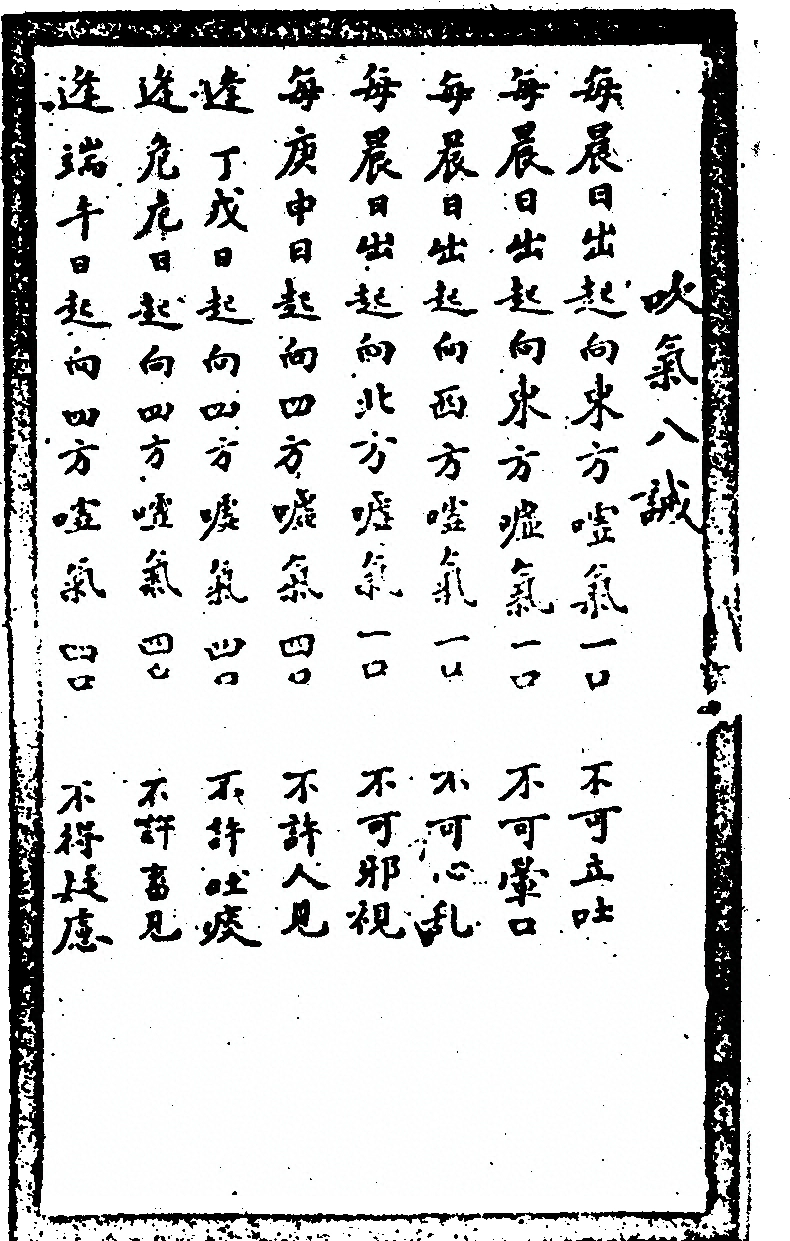 吹氣八誡
每晨日出起向東方噓氣一口　不可立吐
每晨日出起向東方噓氣一口　不可葷口
每晨日出起向西方噓氣一口　不可心乱
每晨日出起向北方噓氣一口　不可邪視
每庚申日起向四方噓氣四口　不許人見
逢丁戊日起向四方噓氣四口　不許吐痰
逢危危日起向四方噓氣四口　不許畜見
逢端午日起向四方噓氣四口　不得疑慮